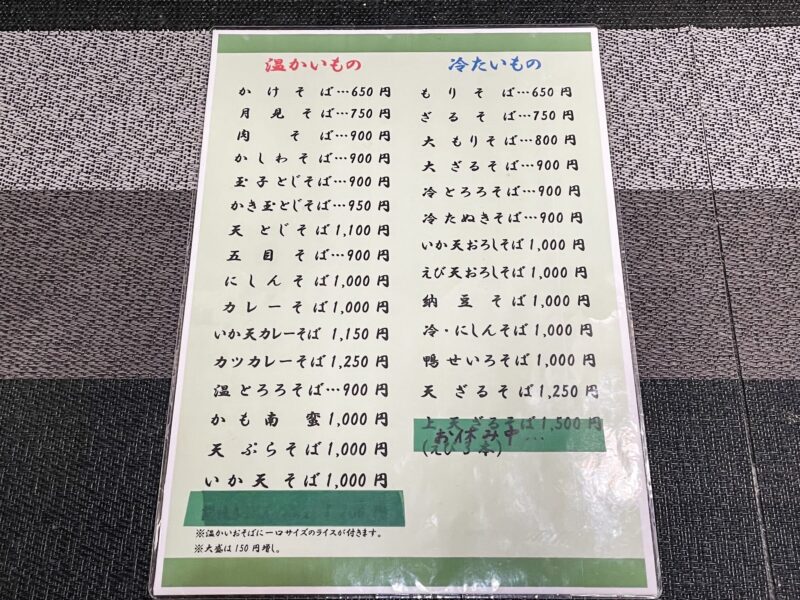 温かいもの
かけそば…650円
月見そば…750円
肉そば…900円
かしわそば…900円
玉子とじそば…900円
かき玉とじそば…950円
天とじそば1,100円
五目そば…900円
にしんそば1,000円
カレーそば1,000円
いか天カレーそば 1,150円
カツカレーそば1,250円
温とろろそば…900円
かも南蛮1,000円
天ぷらそば1,000円
いか天そば1,000円
※温かいおそばに一口サイズのライスが付きます。
※大盛は150円増し。
冷たいもの
もりそば…650円
ざるそば…750円
大もりそば…800円
大ざるそば…900円
冷とろろそば…900円
冷たぬきそば…900円
いか天おろしそば1,000円
えび天おろしそば1,000円
納豆そば1,000円
冷・にしんそば1,000円
鴨せいろそば1,000円
天ざるそば1,250円
上天ざるそば1,500円
お休み中…
(えび3本)